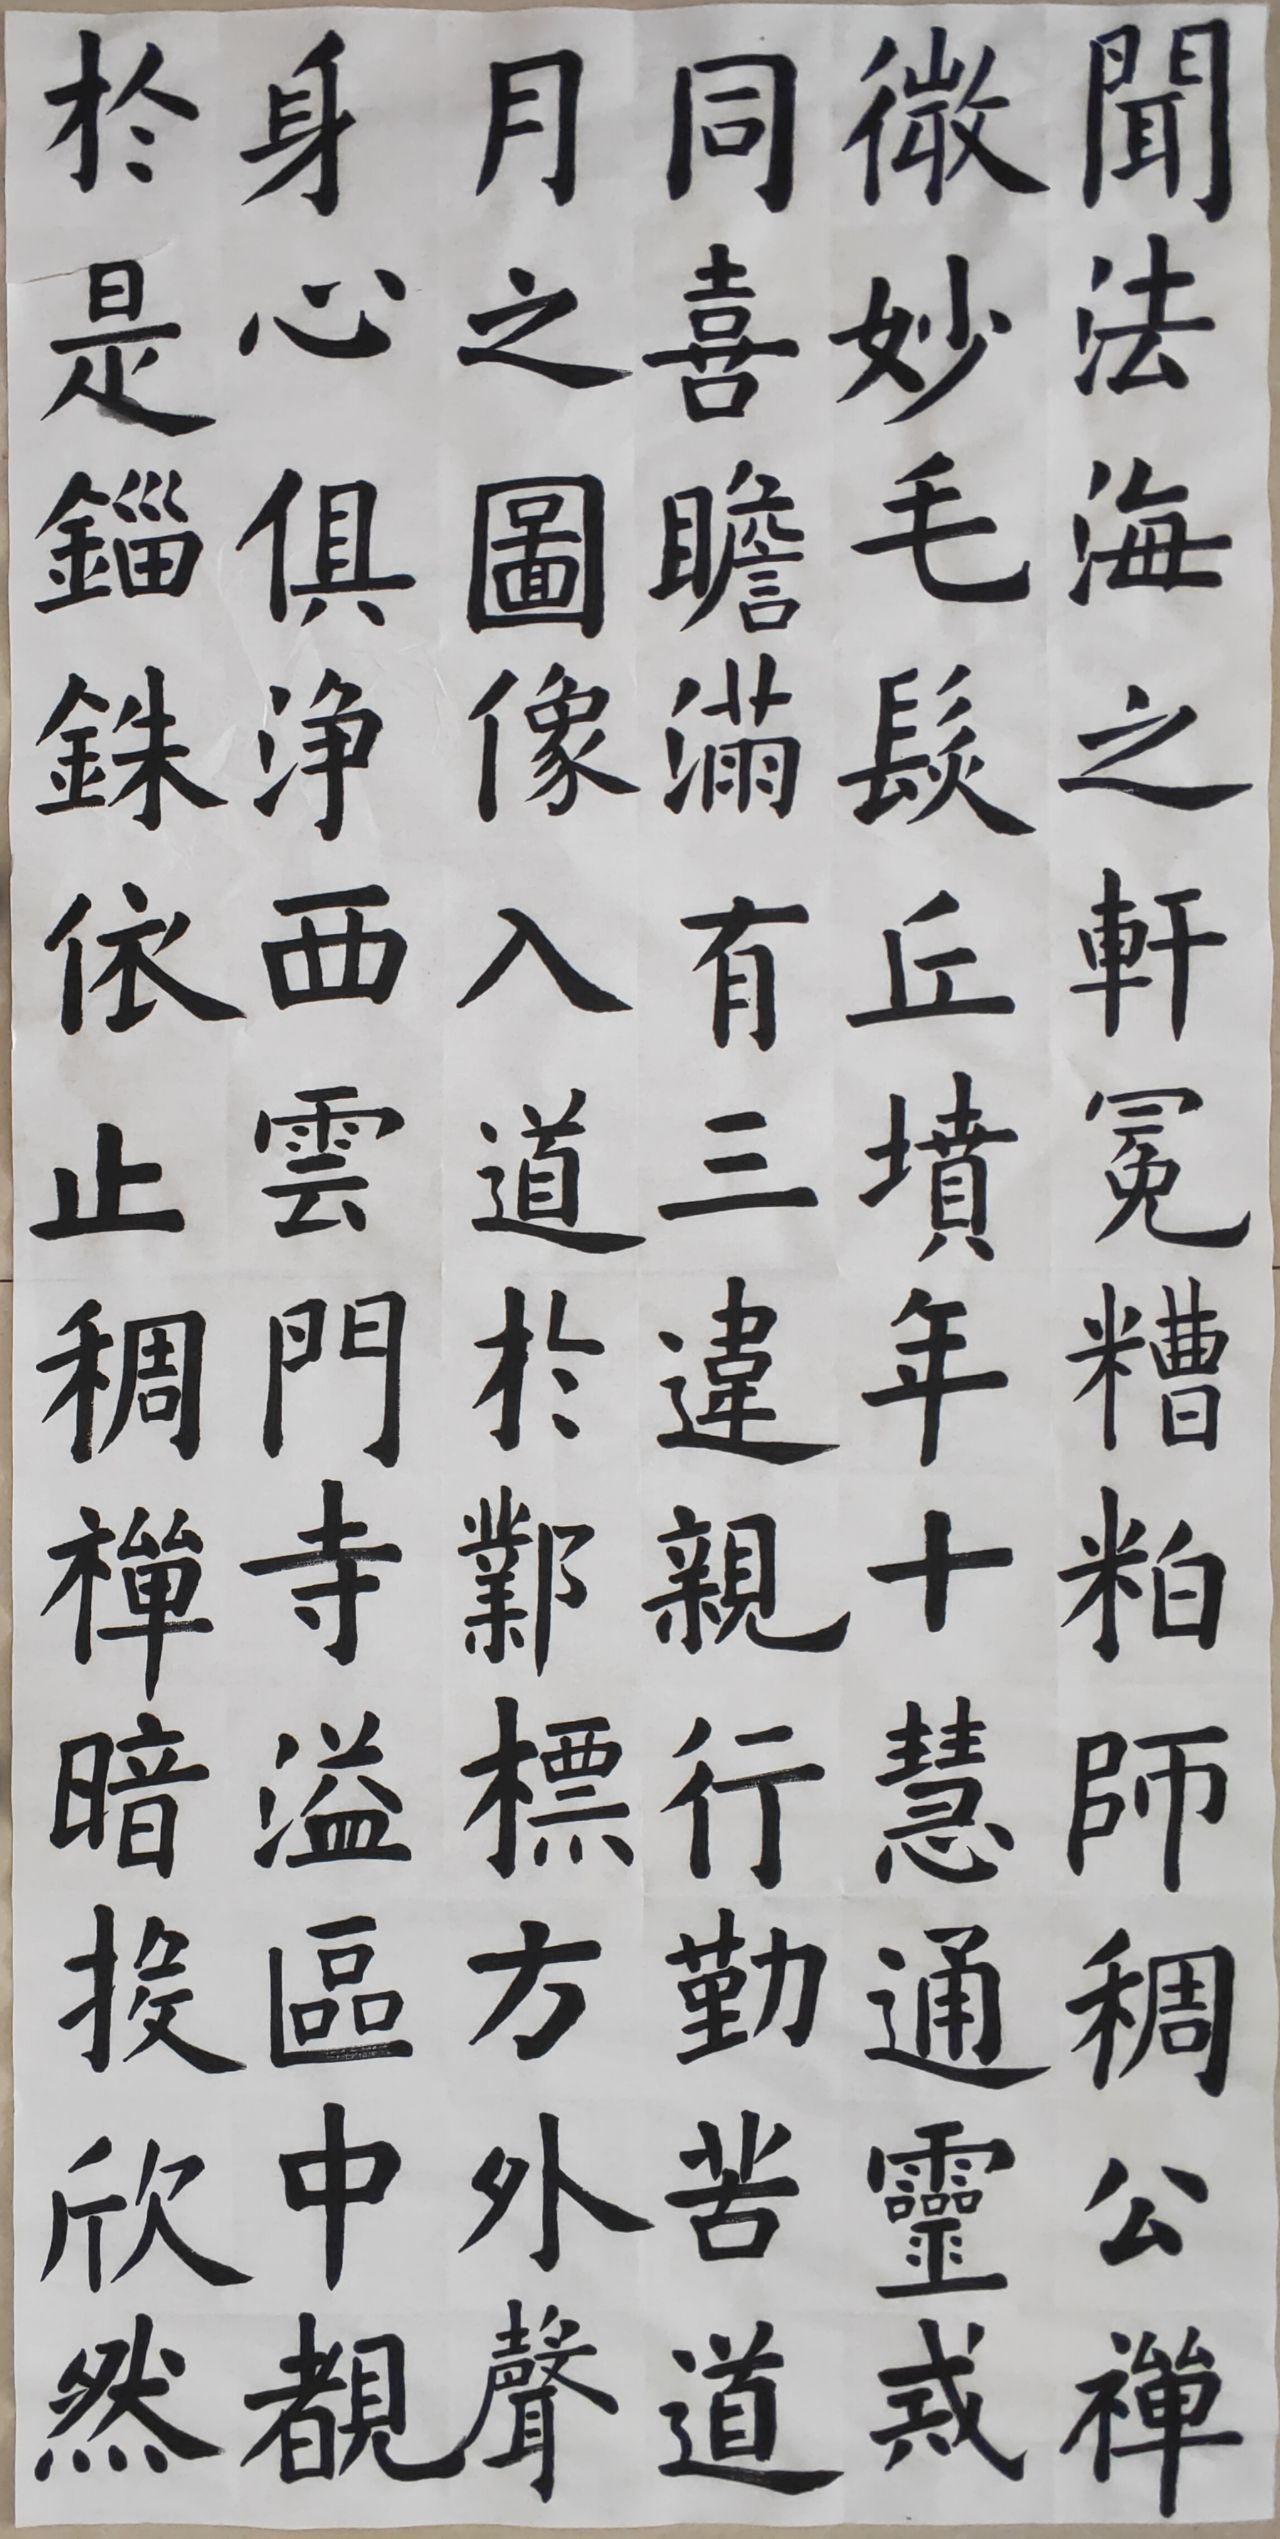 聞法海之軒冕糟粕師稠公禪
微妙毛髮丘墳年十慧通靈戒
同喜瞻滿有三違親行勤苦道
月之圖像入道於鄴標方外聲
身心俱淨西雲門寺溢區中覩
於是錙銖依止稠禪暗投欣然